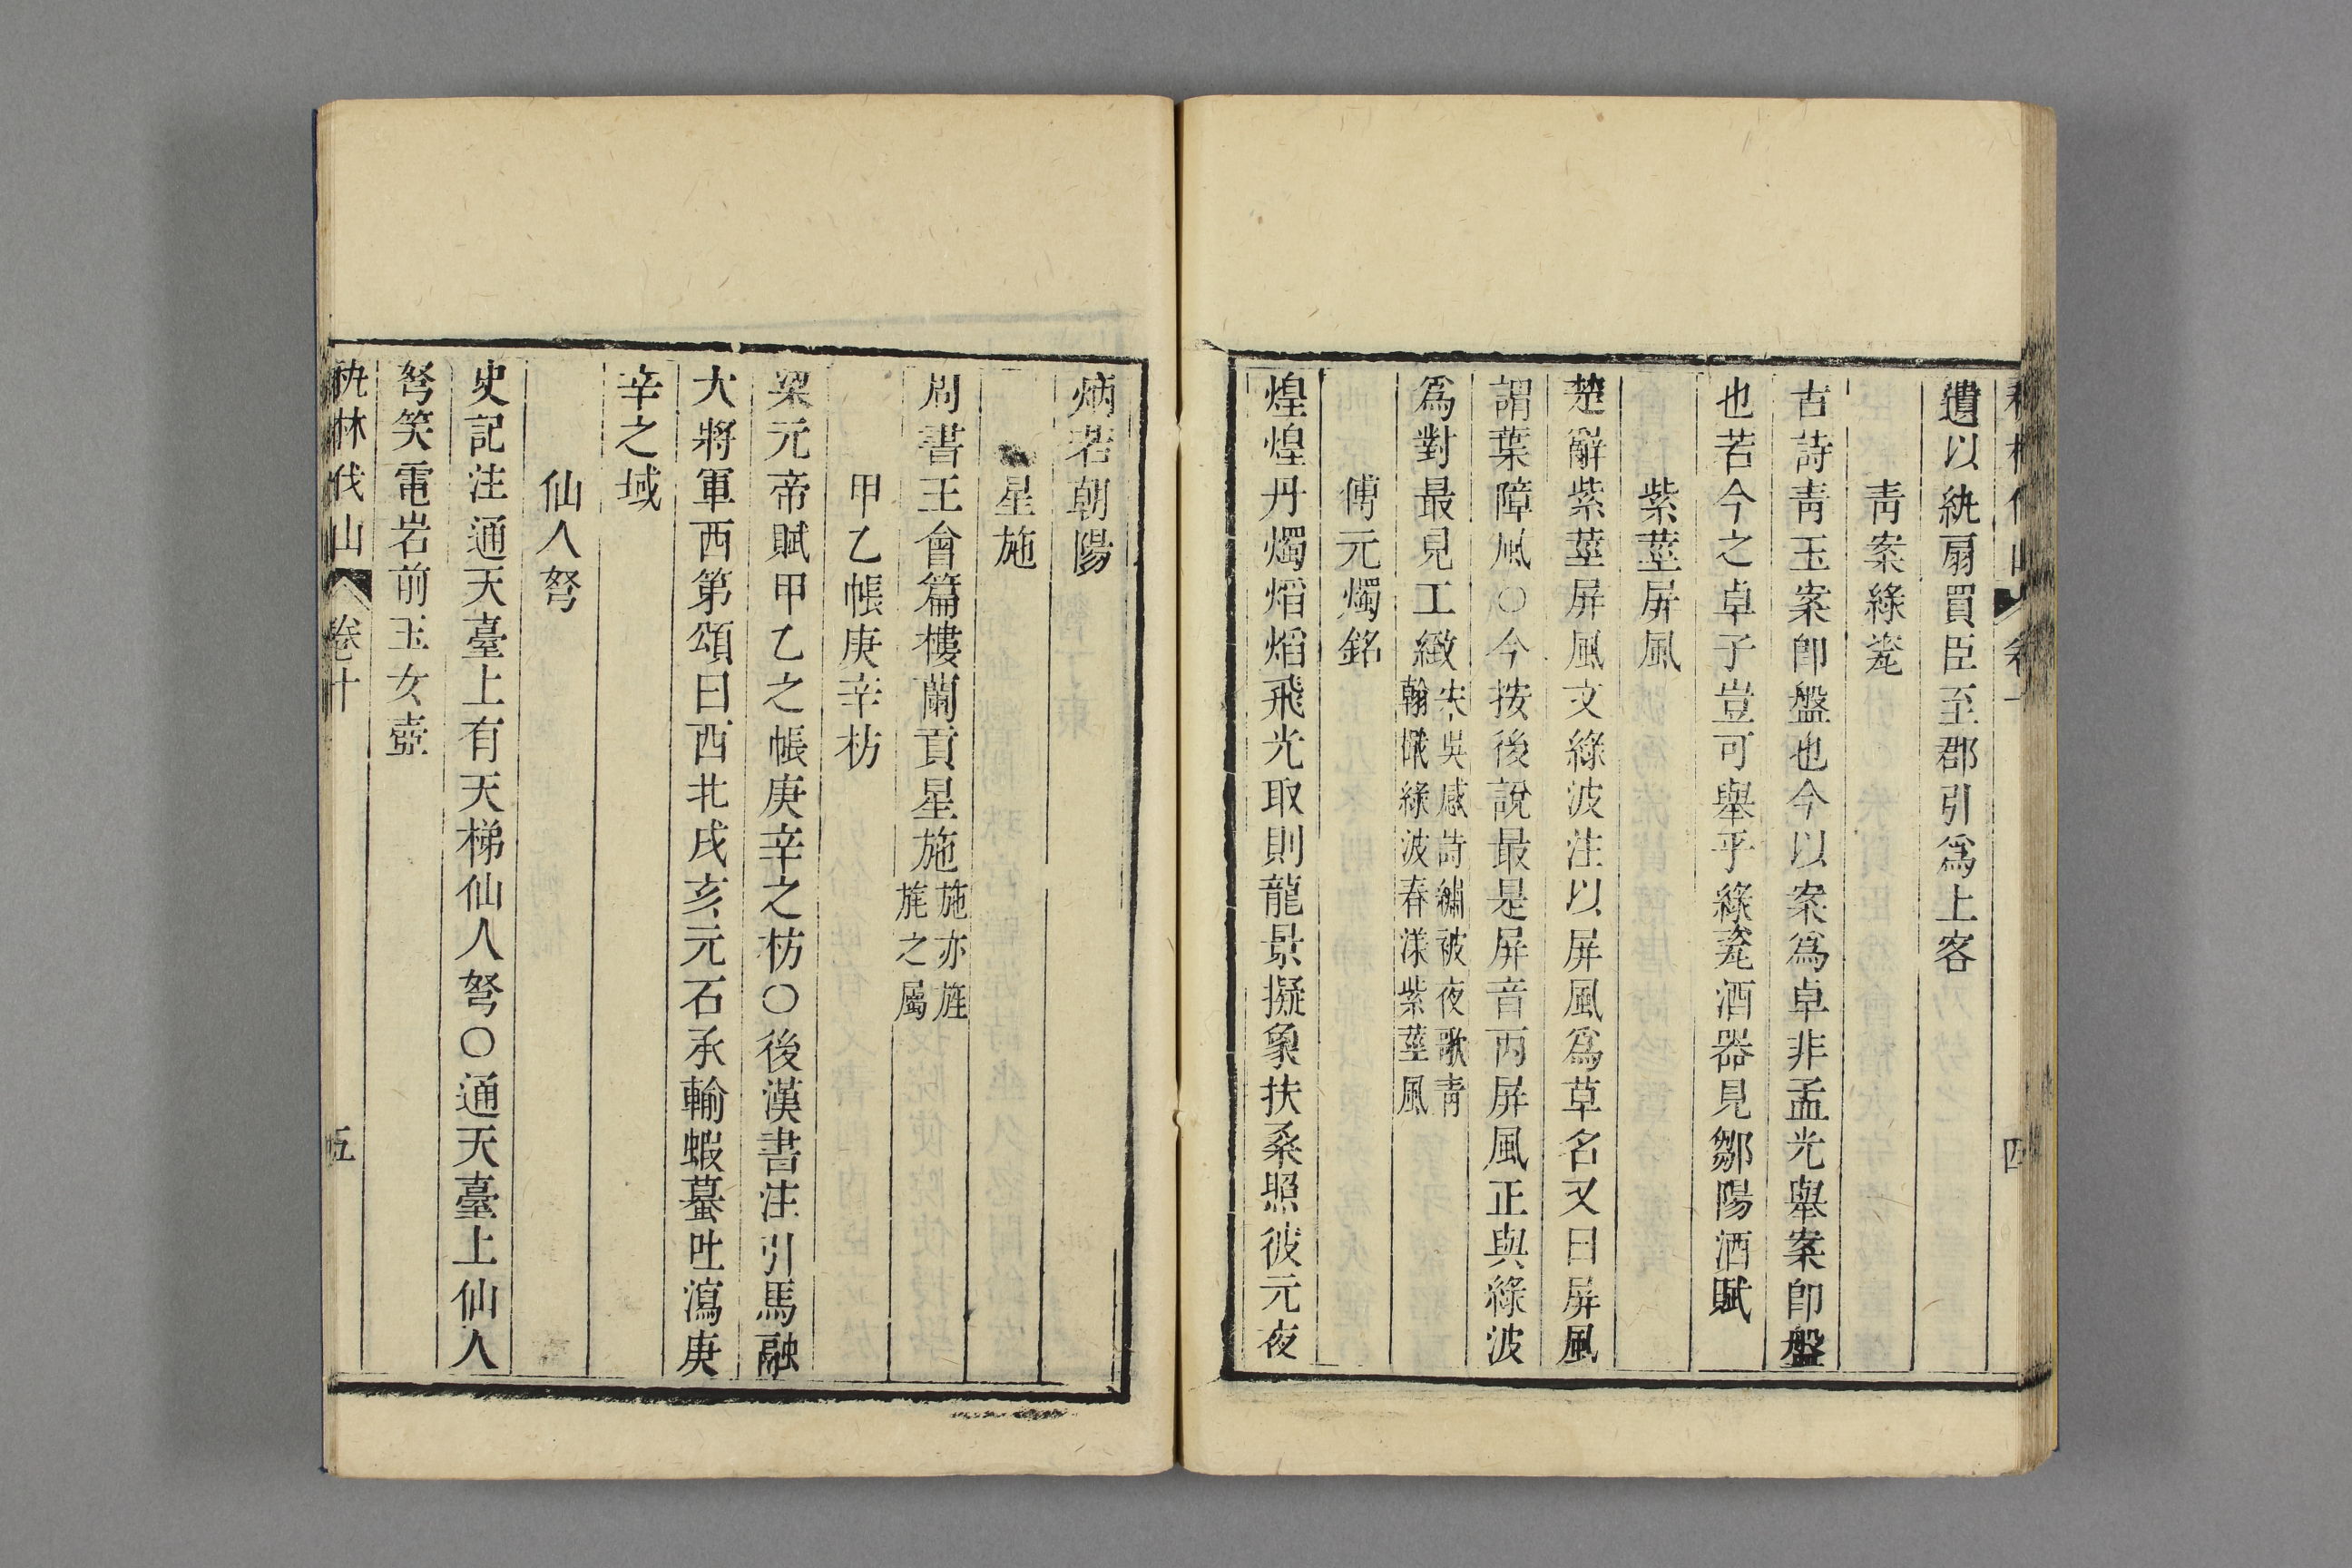 遺以紈扇買臣至郡引爲上客
青案綠瓷
古詩靑玉案卽盤也今以案爲卓非孟光舉案卽盤
也若今之卓子豈可舉乎綠瓷酒器見鄒陽酒賦
紫莖屏風
楚辭紫莖屏風文綠波注以屏風爲草名又曰屏風
謂葉障風○今按後說最是屏音丙屏風正與綠波
爲對最見工緻
夜歌靑
翰檝綠波春漾紫莖風
傅元燭銘
煌煌丹燭熖熖飛光取則龍景擬象扶桑照彼元夜
炳若朝陽
星施
周書王會篇樓蘭貢星施
施亦旌
旄之屬
甲乙帳庚辛枋
梁元帝賦甲乙之帳庚辛之枋○後漢書注引馬融
大將軍西第頌曰西北戌亥元石承輸蝦蟇吐瀉庚
辛之域
仙人弩
史記注通天臺上有天梯仙人弩○通天臺上仙人
弩笑電岩前玉女壺
秇林伐山 卷十 五